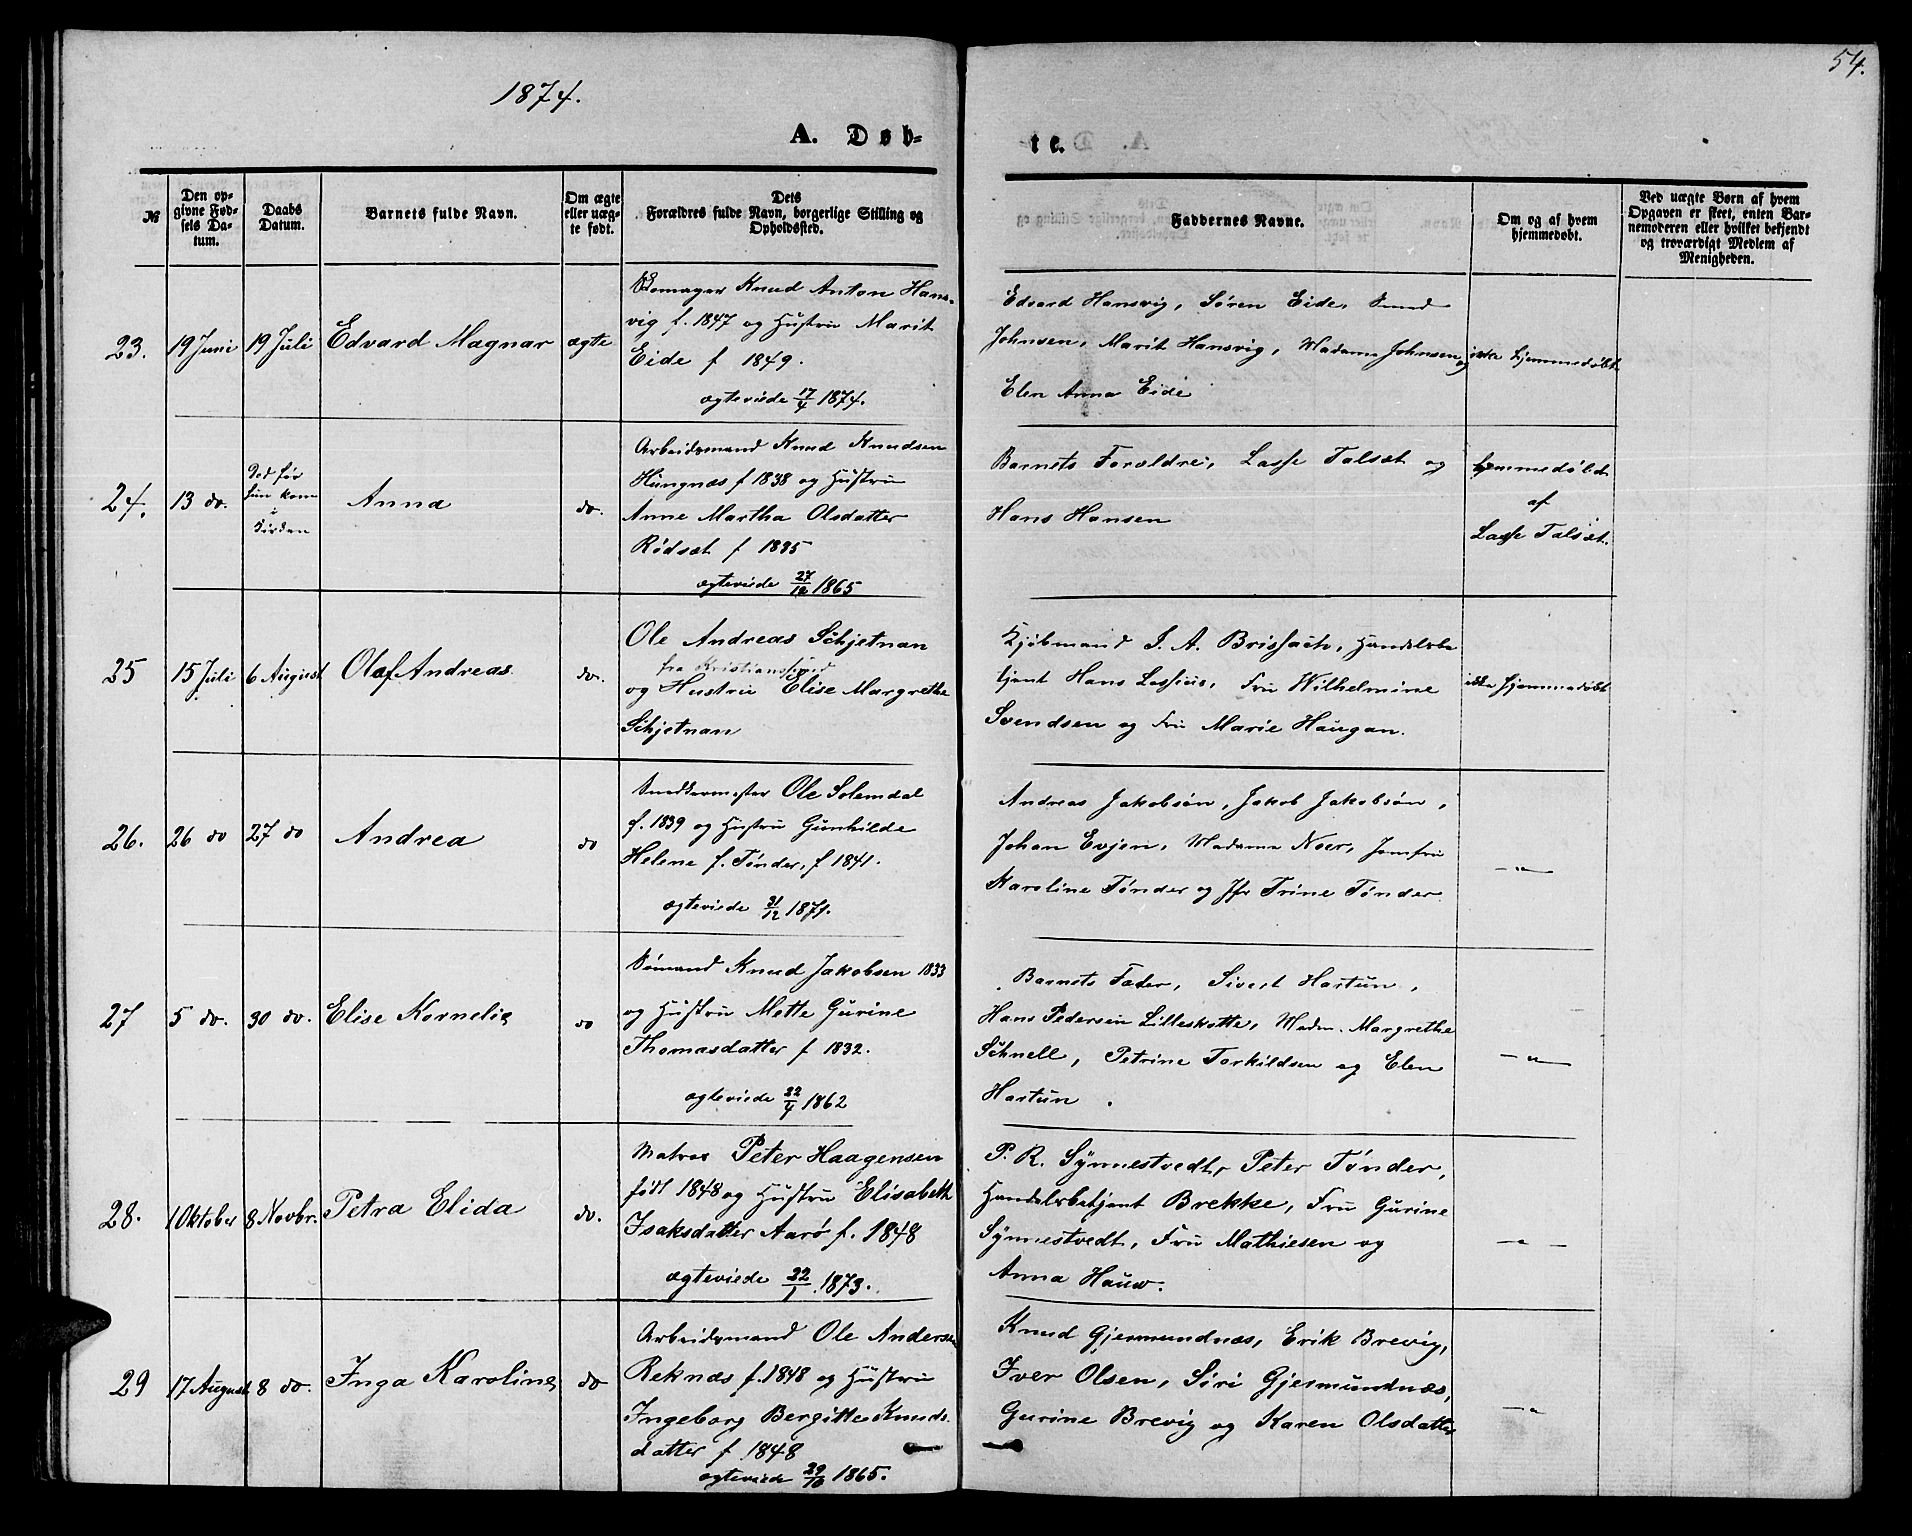 1874.
54.
A. Døb-
te.
№
Den op-
givne Fød-
sels Da-
tum.
Daabs
Datum.
Barnets fulde Navn.
Om ægte
eller uæg-
te født.
Dets
Forældres fulde Navn, borgerlige Stilling og
Opholdssted.
Faddernes Navne.
Om og af hvem
hjemmedøbt.
Ved uægte Børn af hvem
Opgaven er skeet, enten Bar-
nemoderen eller hvilket bekjendt
og troværdigt Medlem af
Menigheden.
23.
19 Juni
19 Juli
Edvard Magnar
ægte
Knud Anton Hans-
vig f. 1847 og Hustru Marit
Eide f 1849.
ægteviede 17/4 1874.
Edvard Hansvig, Søren Eide, Knud
Johnsen, Marit Hansvig, Madame Johnsen og
Elen Anna Eide
ikke hjemmedøbt
24.
13 do.
Død før
hun kom
i
Kirken
Anna
do.
Arbeidsmand Knud Knudsen
Hungnæs f 1838 og Hustru
Anne Martha Olsdatter
Rødsæt f 1835
ægteviede 27/12 1865
Barnets Forældre, Lasse Talsæt og
Hans Hansen
hjemmedøbt
af
Lasse Talsæt.
25
15 Juli
6 August
Olaf Andreas
do.
Ole Andreas Schjetnan
fra Kristianssund
og Hustru Elise Margrethe
Schjetnan
Kjøbmand I. A. Brissach, Handelsbe
tjent Hans Lossius, Fru Wilhelmine
Svendsen og Fru Marie Haugan.
ikke hjemmedøbt
26.
26 do
27 do
Andrea
do
Snedkermester Ole Solemdal
f. 1839 og Hustru Gunhilde
Helene f. Tønder, f 1841.
ægteviede 31/12 1871.
Andreas Jakobsøn, Jakob Jakobsøn,
Johan Evjen, Madame Noer, Jomfru
Karoline Tønder og Jfr Trine Tønder
— " —
27
5 do.
30 do.
Elise Kornelia
do
Sømand Knud Jakobsen 1833
og Hustru Mette Gurine
Thomasdatter f 1832.
ægteviede 22/4 1862
Barnets Fader, Sivert Hartun,
Hans Pedersen Lilleskotte, Madm. Margrethe
Schnell, Petrine Torkildsen og Elen
Hartun.
— " —
28.
1 Oktober
8 Novbr.
Petra Elida
do.
Matros Peter Haagensen
født 1848 og Hustru Elisabeth
Isaksdatter Aarø f. 1848
ægteviede 22/1 1873.
P. R. Synnestvedt, Peter Tønder,
Handelsbetjent Brekke, Fru Gurine
Synnestvedt, Fru Mathiesen og
Anna Hauw.
— " —
29
17 August
8 do.
Inga Karoline
do
Arbeidsmand Ole Andersen
Reknæs f. 1848 og Hustru
Ingeborg Bergitte Knuds
datter f 1848
ægteviede 29/10 1865.
Knud Gjermundnæs, Erik Brevig,
Iver Olsen, Siri Gjermundnæs,
Gurine Brevig og Karen Olsdatter
— " —